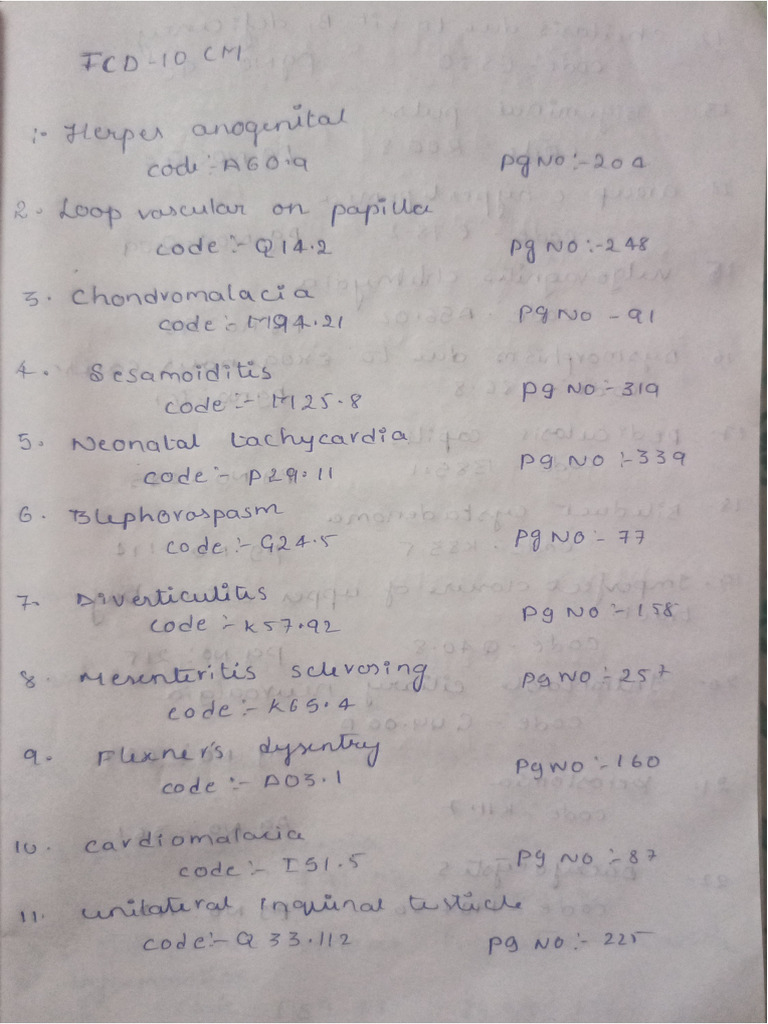 ICD-10 CM
1:- Herpes anogenital
code:- A60.9 Pg No:- 204
2. Loop vascular on papilla
code:- Q14.2 Pg No:-248
3. Chondromalacia
code:- M94.21 Pg No - 91
4. Sesamoiditis
code:- M25.8 Pg No:- 319
5. Neonatal tachycardia
code:- P29.11 Pg No:- 339
6. Blephorospasm
code:- G24.5 Pg No:- 77
7. Diverticulitis
code:- K57.92 Pg No:- 158
8. Mesenteritis sclerosing Pg No:- 257
code:- K65.4
9. Flexner's dysentry
code:- A03.1 Pg No:- 160
10. Cardiomalacia
code:- I51.5 Pg No:- 87
11. Unilateral Inquinal testicle
code:- Q 33.112 Pg No:- 225